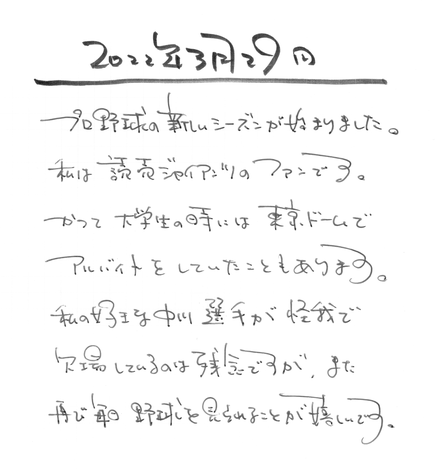 2022年3月29日
プロ野球の新しいシーズンが始まりました。
私は読売ジャイアンツのファンです。
かつて大学生の時には東京ドームで
アルバイトをしていたこともあります。
私の好きな中川選手が怪我で
欠場しているのは残念ですが、また
再び毎日野球を見られることが嬉しいです。